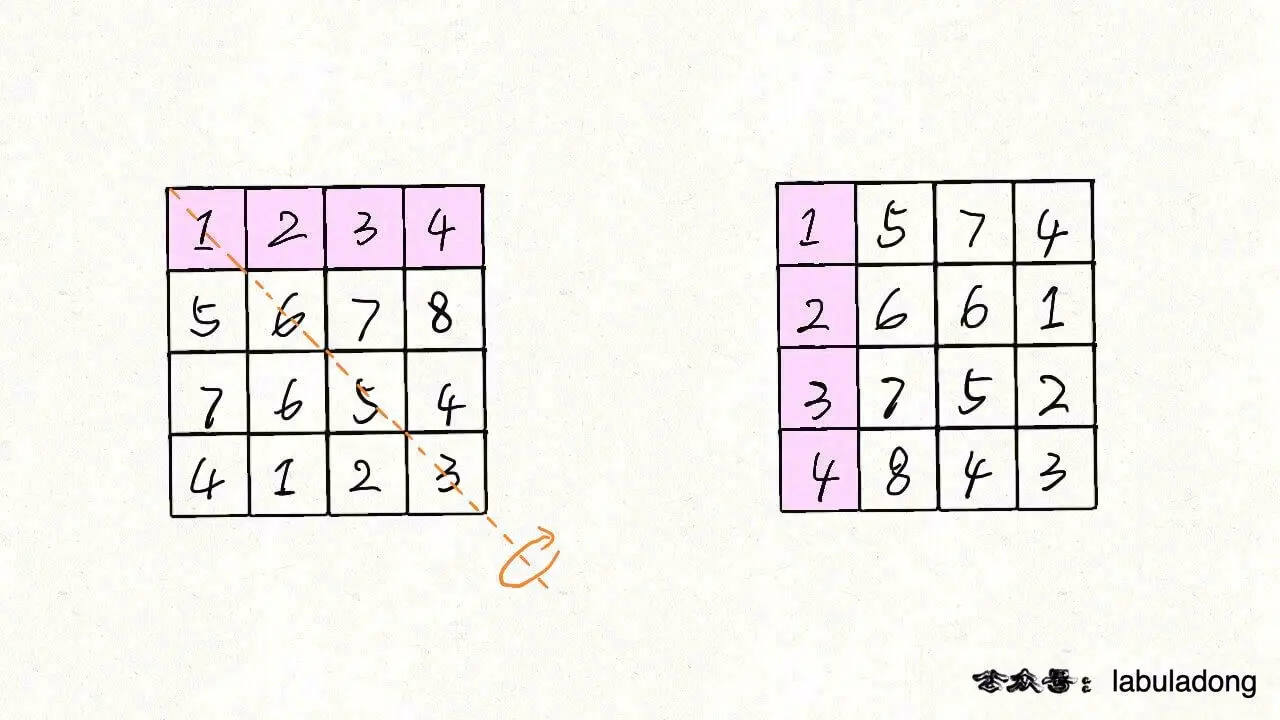 1 2 3 4
5 6 7 8
7 6 5 4
4 1 2 3
1 5 7 4
2 6 6 1
3 7 5 2
4 8 4 3
公众号：labuladong